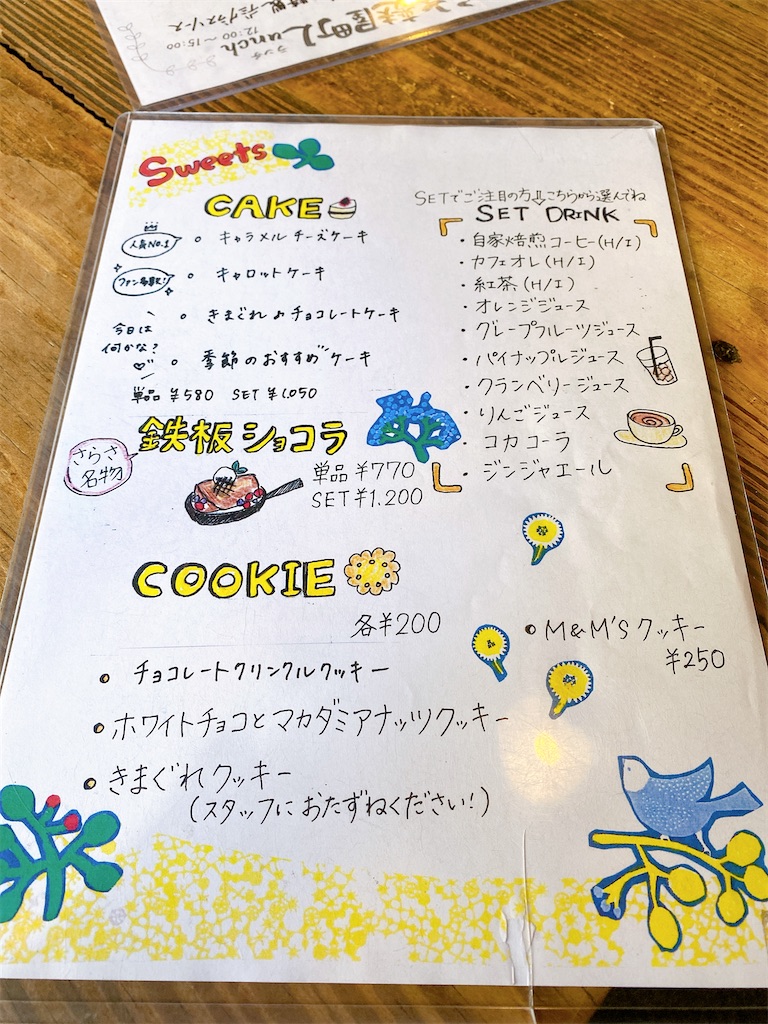 ふや麩屋町Lunch
ランチ
12:00～15:00
Sweets
CAKE
人気No.1
・キャラメルチーズケーキ
ファン多数!
・キャロットケーキ
・きまぐれ♪チョコレートケーキ
今日は
何かな?
・季節のおすすめケーキ
単品 ¥580 SET ¥1,050
SETでご注目の方⇩こちらから選んでね
SET DRINK
・自家焙煎コーヒー(H/I)
・カフェオレ(H/I)
・紅茶(H/I)
・オレンジジュース
・グレープフルーツジュース
・パイナップルジュース
・クランベリージュース
・りんごジュース
・コカコーラ
・ジンジャエール
さらさ
名物
鉄板ショコラ
単品¥770
SET¥1.200
COOKIE
各¥200
・チョコレートクリンクルクッキー
・ホワイトチョコとマカダミアナッツクッキー
・きまぐれクッキー
(スタッフにおたずねください!)
・M&M'Sクッキー
¥250